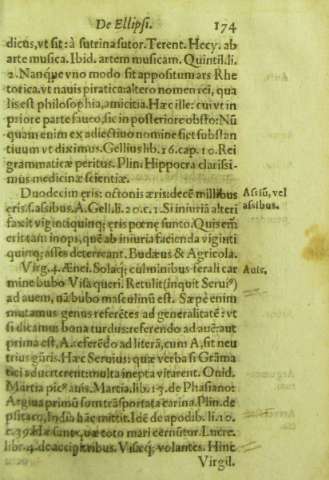 De Ellipsi. 174
dicus, vt sit: à sutrina sutor. Terent. Hecy. ab
arte musica. Ibid. artem musicam. Quintil. li.
2. Nanque vno modo sit appositum ars Rhe
torica. vt nauis piratica: altero nomen rei, qua
lis est philosophia, amicitia. Hæc ille: cui vt in
priore parte fauco, sic in posteriore obsto: Nũ
quam enim ex adiectiuo nomine fit substan
tiuum vt diximus. Gellius lib. 16. cap. 10. Rei
grammaticæ peritus. Plin: Hippocra clarissi-
mus medicinæ scientiæ.
Duodecim eris: octonis æris: decẽ millibus
eris. s. assibus. A. Gell. li. 20. c. 1. Si iniuriã alteri
faxit vigintiquinq; eris pœnę sunto. Quis em̃
erit tam inops, quẽ ab iniuria facienda viginti
quinq; asses deterreant. Budæus & Agricola.
Assiũ, vel
assibus.
Virg. 4. Ænei. Solaq; culminibus ferali car
mine bubo Visa queri. Retulit (inquit Serui⁹)
ad auem, nã bubo masculinũ est. Sæpè enim
mutamus genus referẽtes ad generalitatẽ: vt
si dicamus bona turdus: referendo ad auẽ: aut
prima est, A. referẽdo ad literã, cum A, sit neu
trius gñris. Hæc Seruius: quæ verba si Gramã
tici aduerterent: multa inepta vitarent. Ouid.
Martia pic⁹ auis. Martia. lib. 13. de Phasiano:
Argiua primũ sum trãsportata carina. Plin. de
psitaco, India hãc mittit. Idẽ de apodib. li. 10.
c. 39. Hæ sunt, quæ toto mari cernũtur. Lucre.
lib. 4. de accipitribus. Visæq; volantes. Hinc
Auis.
Virgil.